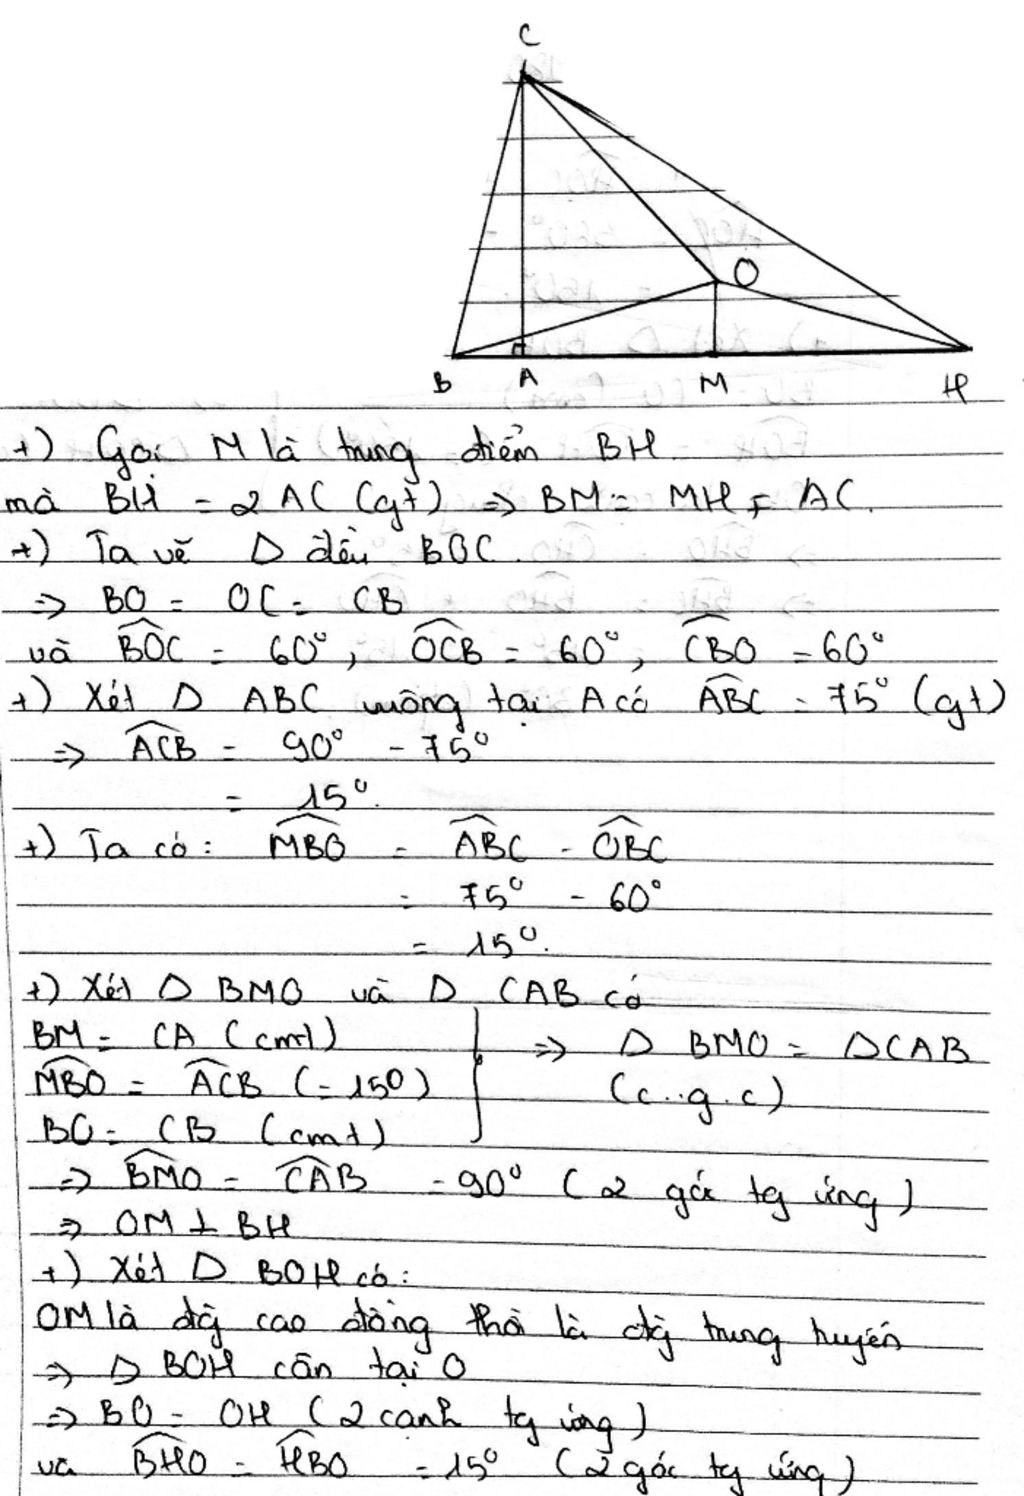 C
O
B A M H
+) Gọi M là trung điểm BH.
mà BH = 2AC (gt) => BM = MH = AC.
+) Ta vẽ Δ đều BOC.
=> BO = OC = CB
và BOC = 60°, OCB = 60°, CBO = 60°
+) Xét Δ ABC vuông tại A có ABC = 75° (gt)
=> ACB = 90° - 75°
= 15°.
+) Ta có: MBO = ABC - OBC
= 75° - 60°
= 15°.
+) Xét Δ BMO và Δ CAB có
BM = CA (cmt)
MBO = ACB (= 15°)
BO = CB (cmt)
=> Δ BMO = ΔCAB
(c.g.c)
=> BMO = CAB = 90° (2 góc tg ứng)
=> OM ⊥ BH
+) Xét Δ BOH có:
OM là đg cao đồng thời là đg trung tuyến
=> Δ BOH cân tại O
=> BO = OH (2 cạnh tg ứng)
và BHO = HBO = 15° (2 góc tg ứng)